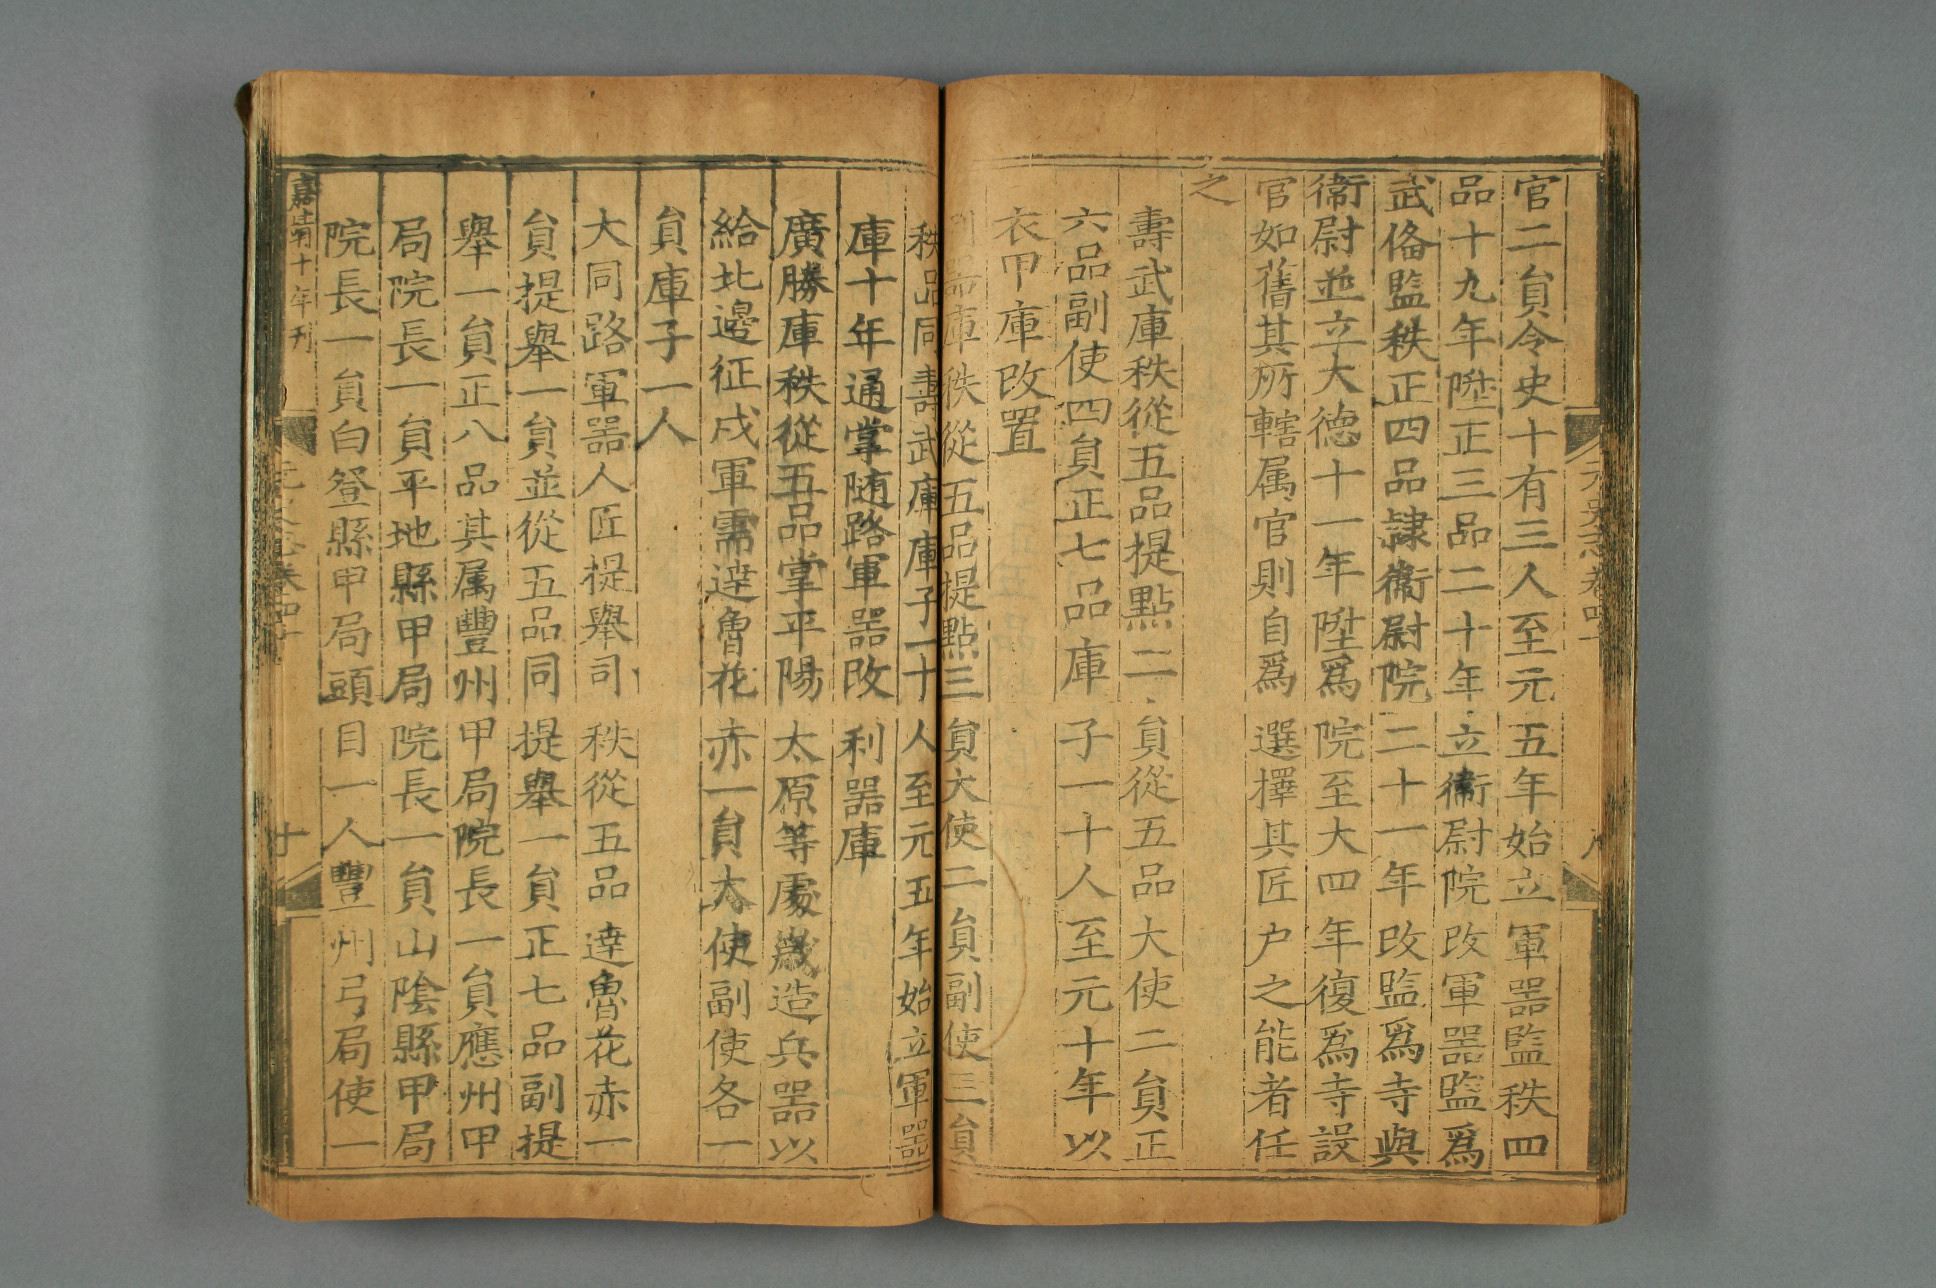 官二負令史十有三人至元五年始立軍噐監秩四
品十九年陞正三品二十年立衞尉院改軍噐監爲
武俻監秩正四品隷衞尉院二十一年改監爲寺與
衞尉並立大德十一年陞爲院至大四年復爲寺設
官如舊其所轄属官則自爲選擇其匠户之能者任
之
壽武庫秩從五品提點二負從五品大使二負正
六品副使四負正七品庫子一十人至元十年以
衣甲庫改置
利噐庫秩從五品提點三負大使二負副使三負
秩品同壽武庫庫子一十人至元五年始立軍噐
庫十年通掌随路軍噐改利噐庫
廣勝庫秩從五品掌平陽太原等處歲造兵噐以
給北邊征戍軍需達魯花赤一負大使副使各一
負庫子一人
大同路軍噐人匠提舉司秩從五品達魯花赤一
負提舉一負並從五品同提舉一負正七品副提
舉一負正八品其属豐州甲局院長一負應州甲
局院長一負平地縣甲局院長一負山陰縣甲局
院長一負白登縣甲局頭目一人豐州弓局使一
嘉靖十年刊